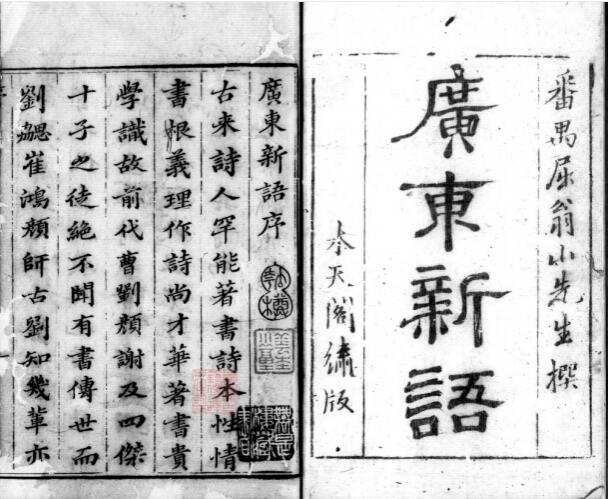 番禺屈翁山先生撰
廣東新語
水天閣繡版
廣東新語序
古来詩人罕能著書詩本性情
書根義理作詩尚才華著書貴
學識故前代曹劉顏謝及四傑
十子之徒絶不聞有書傳世而
劉勰崔鴻顏師古劉知幾輩亦